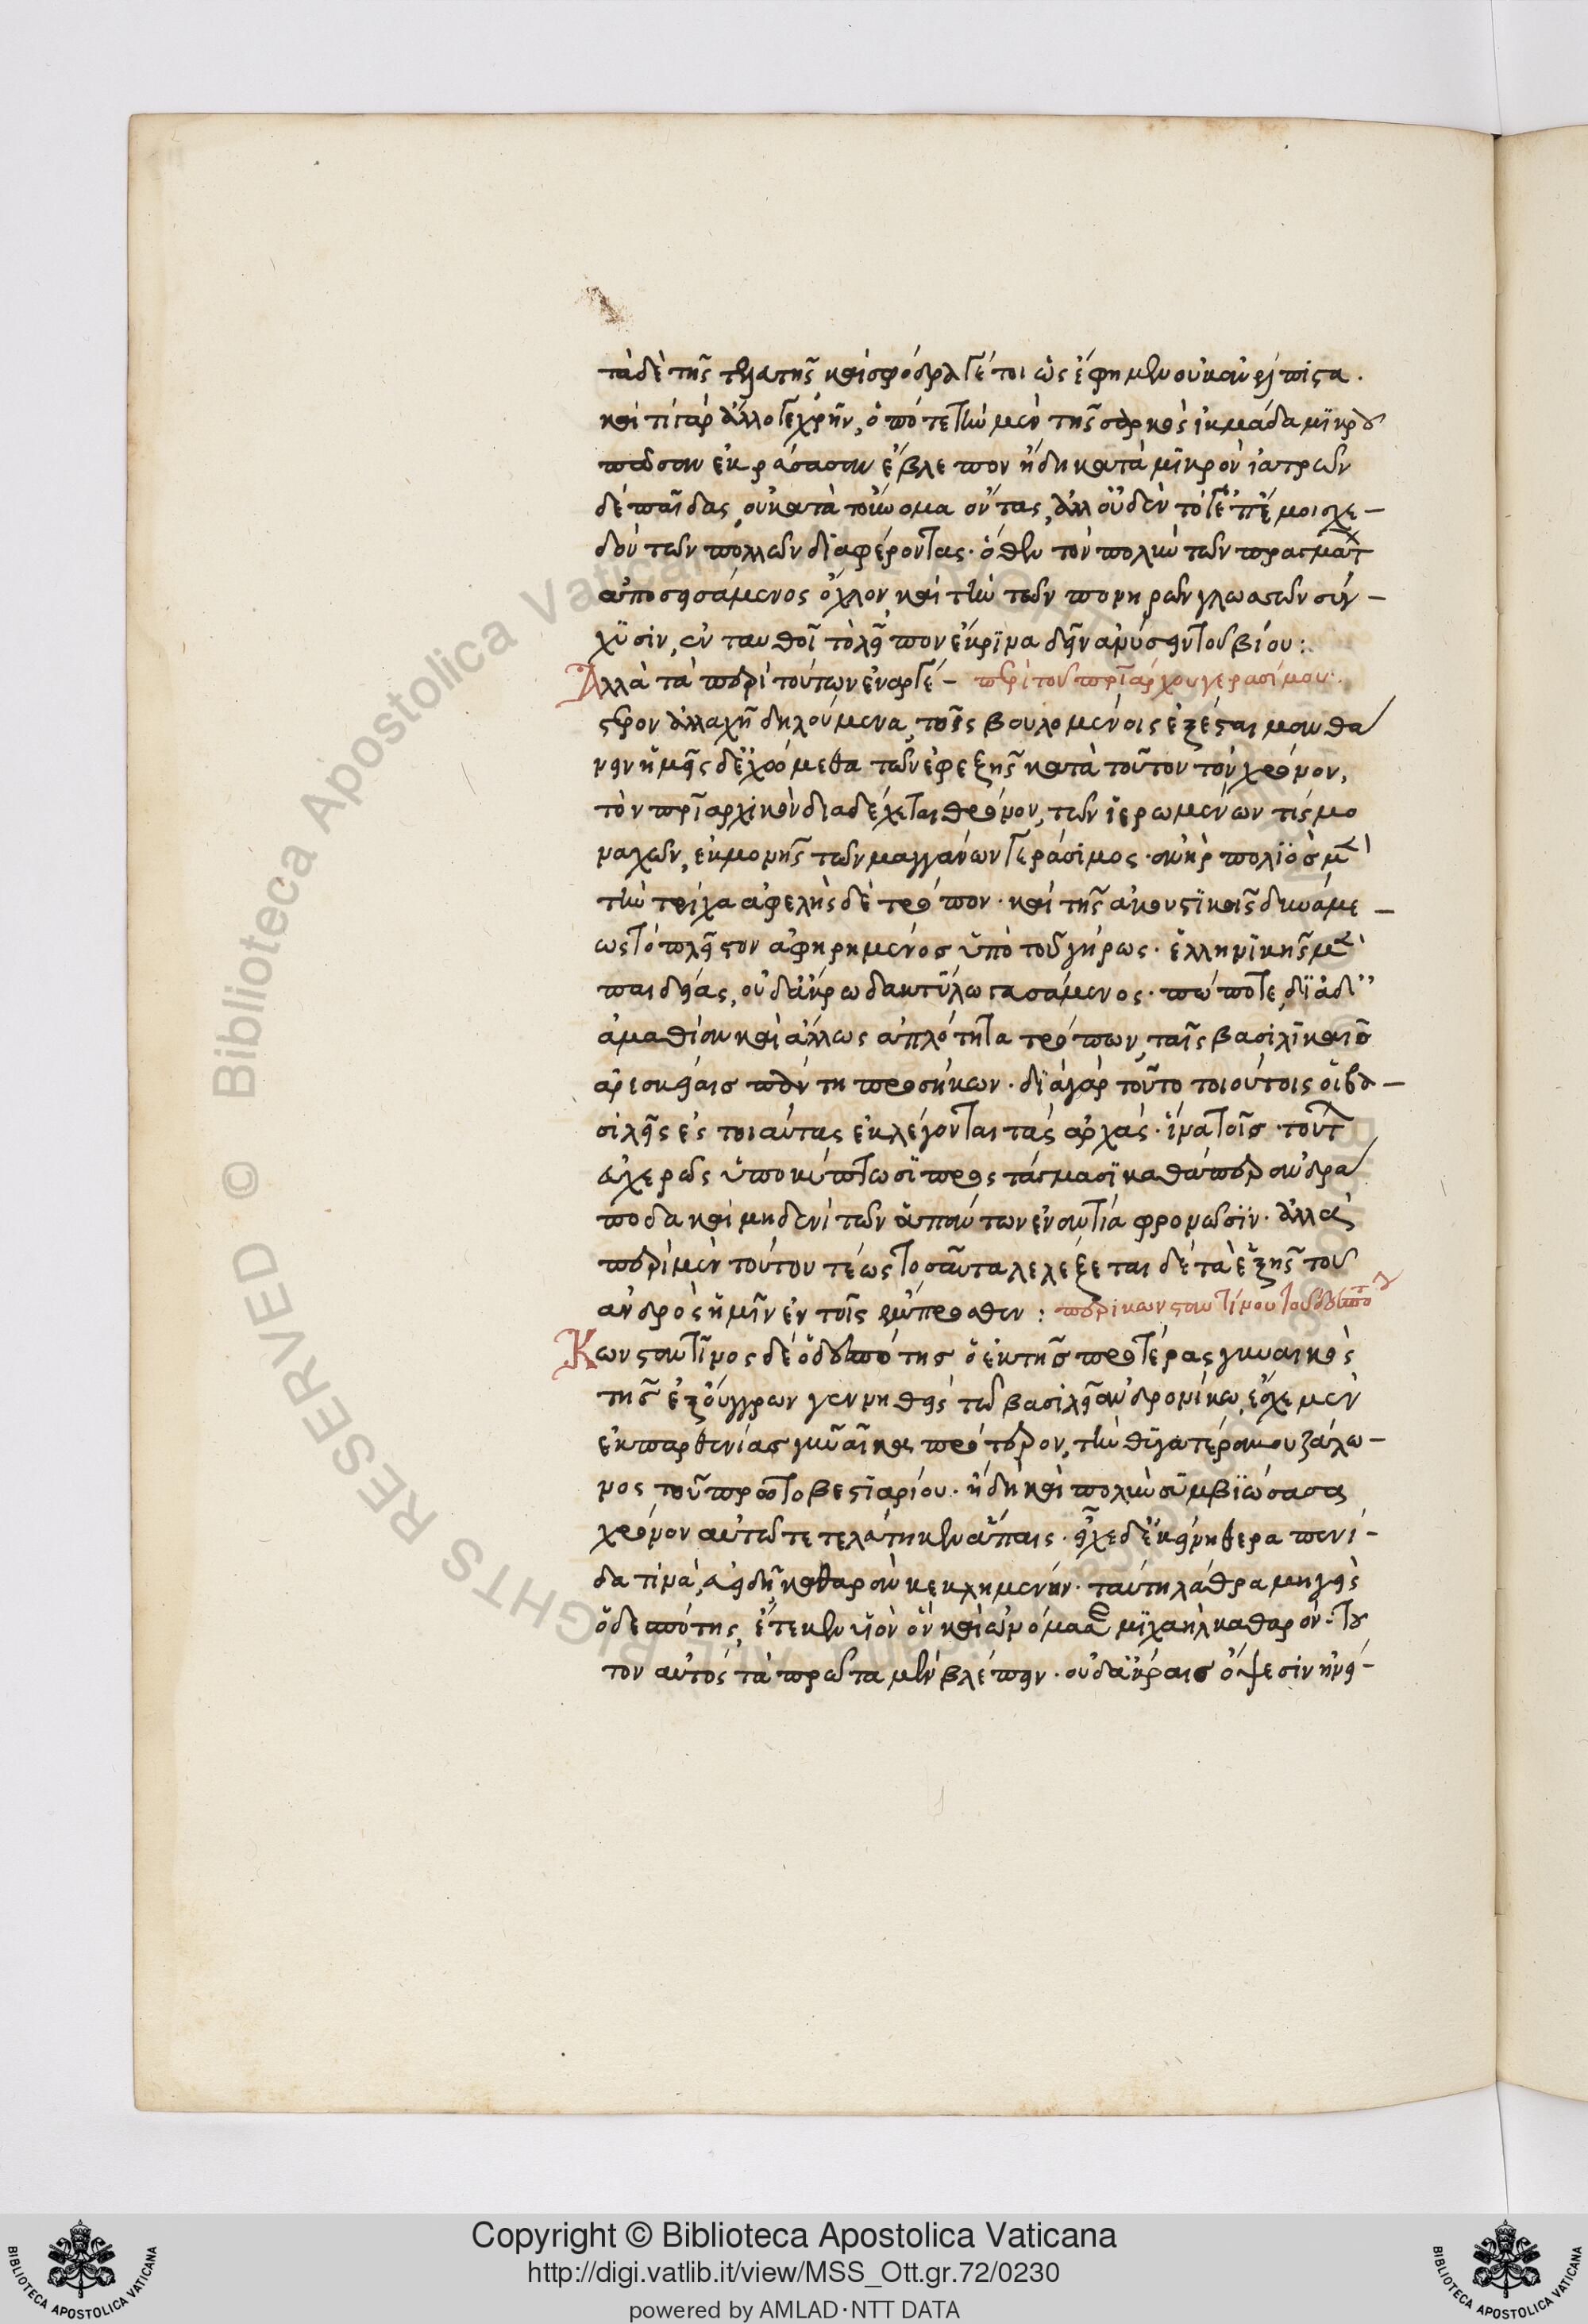 τὰ δὲ τῆς τελευτῆς καὶ σφόδρα γέ τοι ὡς ἔφημεν οὐκ ἀνέλπιστα.
καὶ τί γὰρ ἄλλο γ' ἐχρῆν, ὁπότε τὴν μὲν τῆς σαρκὸς ἰκμάδα μικροῦ
πᾶσαν ἐκ ἔβλεπον ἤδη κατὰ μικρὸν ἰατρῶν
δὲ παῖδας, οὐ κατὰ τοὔνομα ὄντας, ἀλλ' οὐδὲν τόγε ἐπ' ἐμοὶ σχε-
δὸν τῶν πολλῶν διαφέροντας. ὅθεν τὸν πολὺν τῶν πραγμάτ
ἀποσεισάμενος ὄχλον, καὶ τὴν τῶν πονηρῶν γλωσσῶν σύγ-
χυσιν, ἐνταυθοῖ τὸ λεῖπον ἔκρινα δεῖν ἀνύσειν τοῦ βίου:
Ἀλλὰ τὰ περὶ τούτων ἐναργέ- περὶ τοῦ πατριάρχου γερασίμου.
στερον ἀλλαχῆ δηλούμενα, τοῖς βουλομένοις ἐξέσται μανθά
νειν ἡμεῖς δ' ἐχόμεθα τῶν ἐφεξῆς κατὰ τοῦτον τὸν χρόνον,
τὸν πατριαρχικὸν διαδέχεται θρόνον, τῶν ἱερωμένων τὶς μο
ναχῶν, ἐκ μονῆς τῶν μαγγάνων Γεράσιμος. ἀνὴρ πολιὸς μὲν
τὴν τρίχα ἀφελὴς δὲ τρόπον. καὶ τῆς ἀκουστικῆς δυνάμε-
ως τὸ πλεῖστον ἀφηρημένος ὑπὸ τοῦ γήρως. ἑλληνικῆς μὲν
παιδείας, οὐδ' ἄκρω δακτύλω γευσάμενος πώποτε, διὰ δ'
ἀμαθίαν καὶ ἄλλως ἁπλότητα τρόπων, ταῖς βασιλικαῖς
ἀρεσκείαις πάντη προσήκων. διὰ γὰρ τοῦτο τοιούτοις οἱ βα-
σιλεῖς ἐς τοιαύτας ἐκλέγονται τὰς ἀρχάς. ἵνα τοῖς τούτ
εὐχερῶς ὑποκύπτωσι προστάγμασι καθάπερ ἀνδρά
ποδα καὶ μηδενὶ τῶν ἁπάντων ἐναντία φρονῶσιν. ἀλλὰ
περὶ μὲν τούτου τέως τοσαῦτα λελέξεται δὲ τὰ ἑξῆς τοῦ
ἀνδρὸς ἡμῖν ἐν τοῖς ἔμπροσθεν: περὶ κωνσταντίνου τοῦ δεσπότ
Κωνσταντῖνος δὲ ὁ δεσπότης ὁ ἐκ τῆς προτέρας γυναικὸς
τῆς ἐξ οὔγγρων γεννηθεὶς τῶ βασιλεῖ ἀνδρονίκω, ἔσχε μὲν
ἐκ παρθενίας γυναῖκα πρότερον, τὴν θυγατέρα μουζάλω-
νος τοῦ πρωτοβεστιαρίου. ἤδη καὶ πολὺν συμβιώσασα
χρόνον αὐτῶ τετελεύτηκεν ἄπαις. εἶχε δ' ἐκείνη θεραπαινί-
δα τινὰ, εὐειδῆ, καθαρὰν κεκλημένην. ταύτη λάθρα μιγεὶς
ὁ δεσπότης, ἔτεκεν υἱὸν ὃν καὶ ὠνόμασε μιχαὴλ καθαρόν. τοῦ
τον αὐτὸς τὰ πρῶτα μὲν βλέπειν. οὐδ' ἄκραις ὄψεσιν ἠνεί-